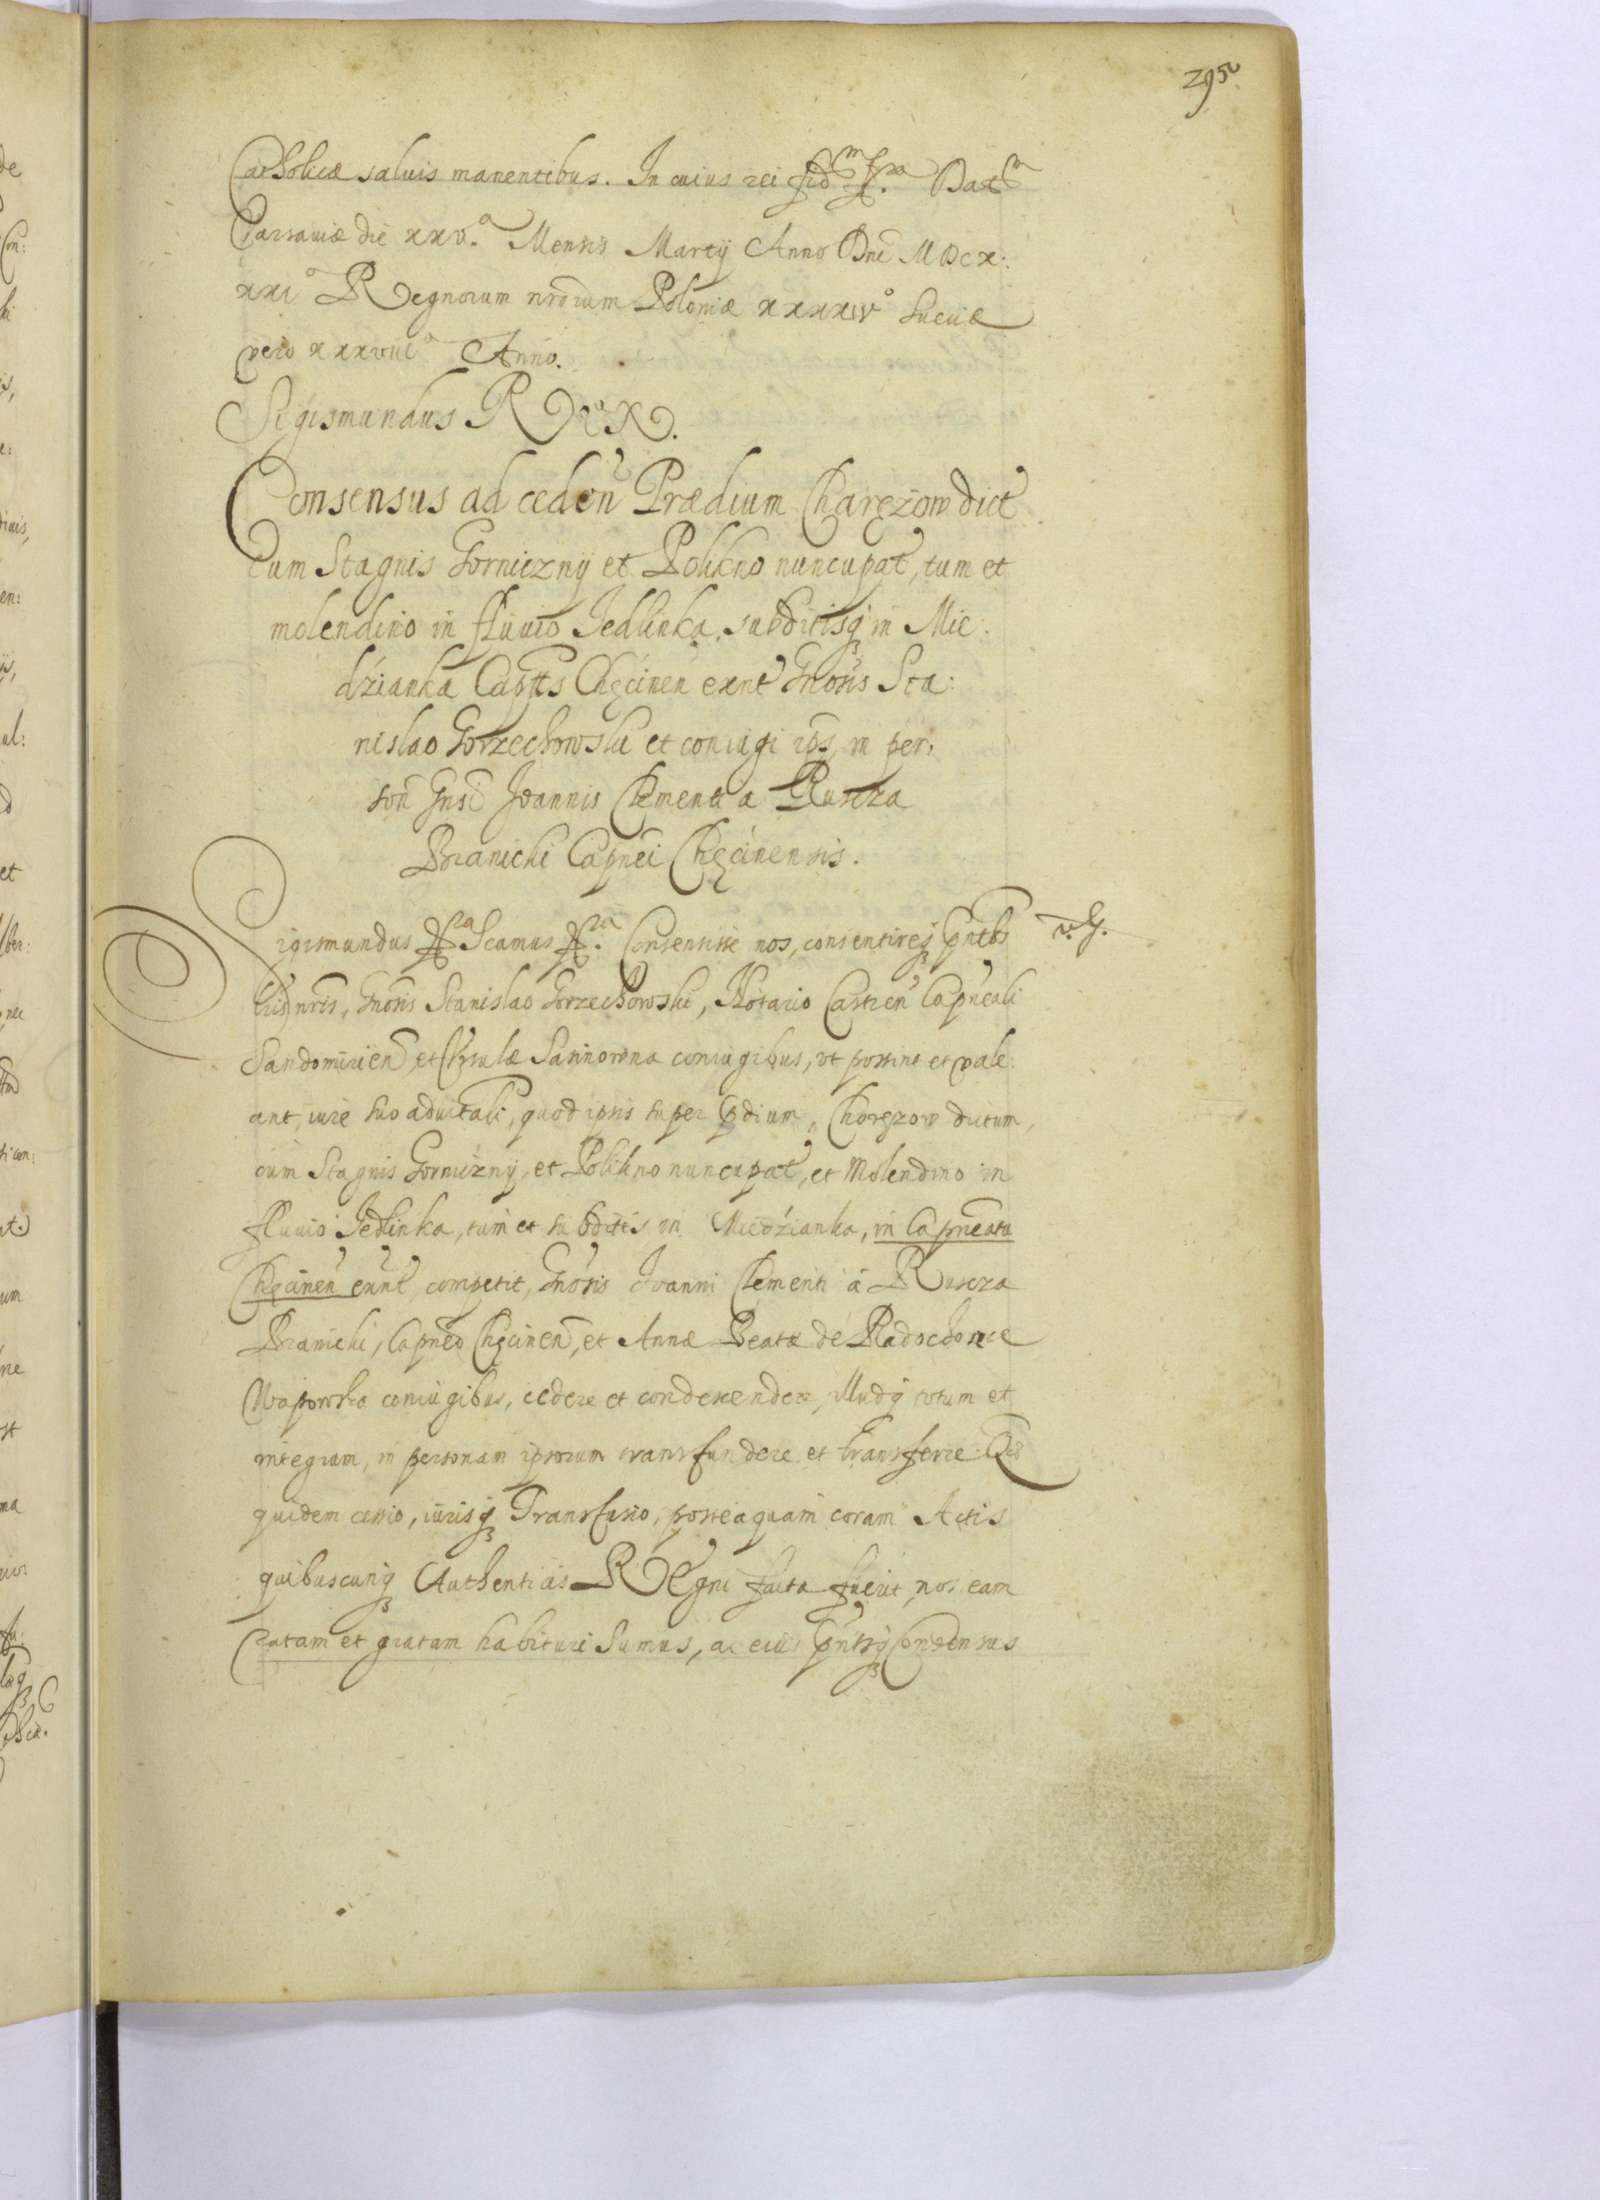 295
Catholicæ saluis manentibus. In cuius rei fid^m &^ra Dat^m
Varsauiæ die xxv.^a Mensis Martij Anno Dni MDCX:
xxi^o Regnorum nrorum Poloniæ xxxxiv^o Sueciæ
vero xxxviii^o Anno.
Sigismundus Rex.
Consensus ad ceden Prædium Charęzow dict
cum Stagnis Gorniczny et Polikno nuncupat, tum et
molendino in fluuio Jedlinka, subditisq in Mie:
dzianka Capttus Chęcinen exnt Gnosis Sta:
nislao Gorzechowski et coniugi ips, in per:
son Gnsi Joannis Clementi a Ruscza
Branicki Capnei Chęcinensis.
Sigismundus &^ra Scamus &^ra. Consensisse nos, consentireq pntbs
lris nris, Gnosis Stanislao Gorzechowski, Notario Castren Capneali
Sandomirien, et Vrsulæ Sasinowna coniugibus, vt possint et vale:
ant, iure suo aduitali, quod ipsis super pdium, Choręzow dictum,
cum Stagnis Gorniczny, et Polikno nuncupat, et Molendino in
fluuio Jedlinka, tum et subditis in Miedzianka, in Capneatu
Chęcinen exnt competit, Gnosis Joanni Clementi à Ruscza
Branicki, Capneo Chęcinen, et Annæ Beatæ de Radochonce
Wapowska coniugibus, cedere et condescendere, illudq totum et
integrum, in personam ipsorum transfundere et transferre. Quæ
quidem cessio, iurisq Transfusio, posteaquam coram Actis
quibuscunq Authenticis Regni facta fuerit, nos eam
ratam et gratam habituri sumus, ac eius pntisq Consensus